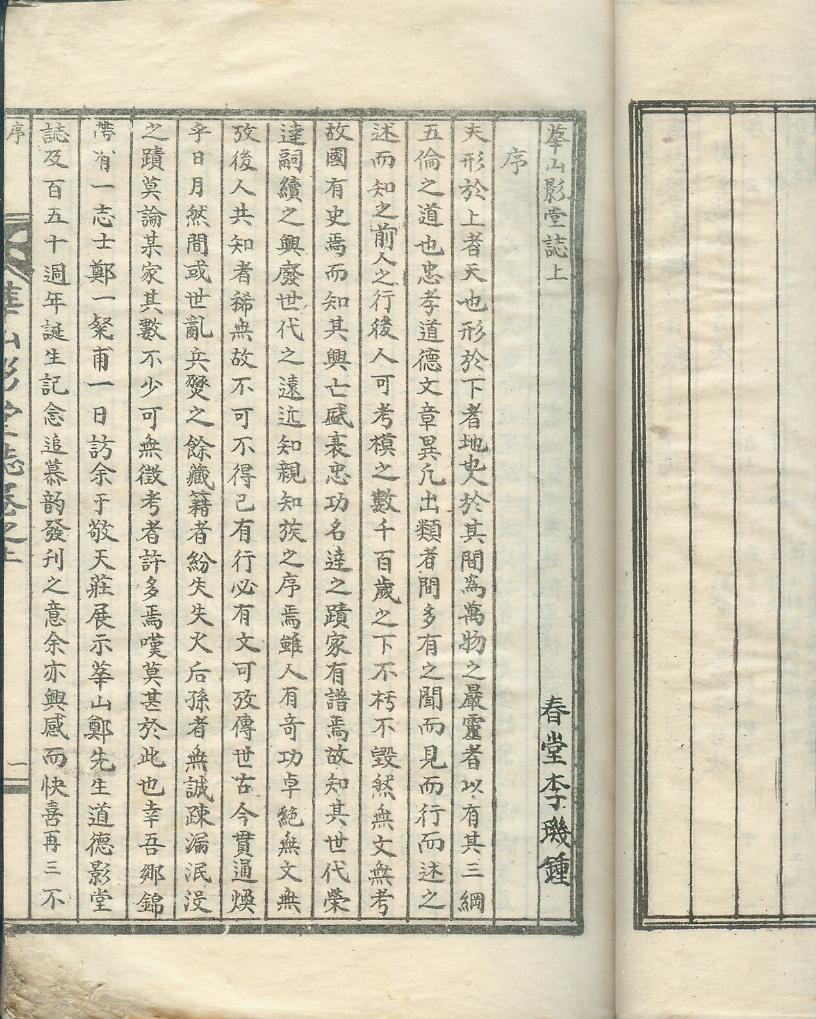 華山影堂誌上
春堂李璣鍾
序
夫形於上者天也形於下者地也人於其間爲萬物之嚴靈者以有其三綱
五倫之道也忠孝道德文章異凡出類者間多有之聞而見而行而述之
述而知之前人之行後人可考模之數千百歲之下不朽不毀然無文無考
故國有史焉而知其興亡盛衰忠功名達之蹟家有譜焉故知其世代榮
達嗣續之興廢世代之遠近知親知族之序焉雖人有奇功卓絶無文無
攷後人共知者稀無故不可不得已有行必有文可攷傳世古今貫通煥
乎日月然間或世亂兵燹之餘藏籍者紛失失火后孫者無誠疎漏泯沒
之蹟莫論某家其數不少可無徵考者許多焉嘆莫甚於此也幸吾鄉錦
帶有一志士鄭一粲甫一日訪余于敬天莊展示華山鄭先生道德影堂
誌及百五十週年誕生記念追慕韵發刊之意余亦興感而快喜再三不
序
華山影堂誌卷之上
一